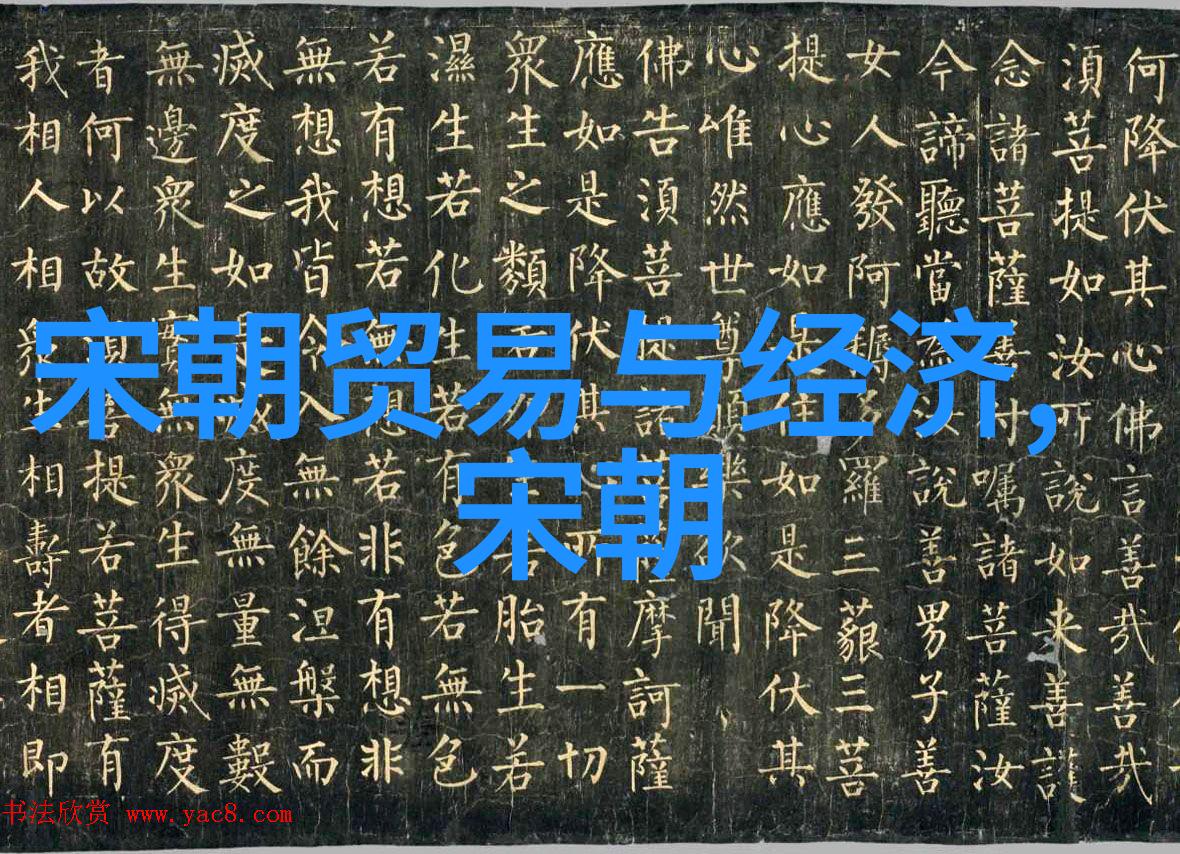 何降伏其心佛言善哉善哉
須菩提如汝所說如来善護
念諸菩薩善付嘱諸菩薩汝
今諦聽當為汝說善男子善
女人發阿耨多羅三藐三菩
提心應如是住如是降伏其
心唯然世尊願樂欲聞
佛告須菩提諸菩薩摩訶薩
應如是降伏其心所有一切
衆生之類若卵生若胎生若
濕生若化生若有色若無色
若有想若無想若非有想非
無想我皆令入無餘涅槃而
滅度之如是滅度無量無數
無邊衆生實無衆生得滅度
者何以故須菩提若菩薩有
我相人相衆生相壽者相即
宋朝贸易与经济,
宋朝
书法欣赏 www.yac8.com